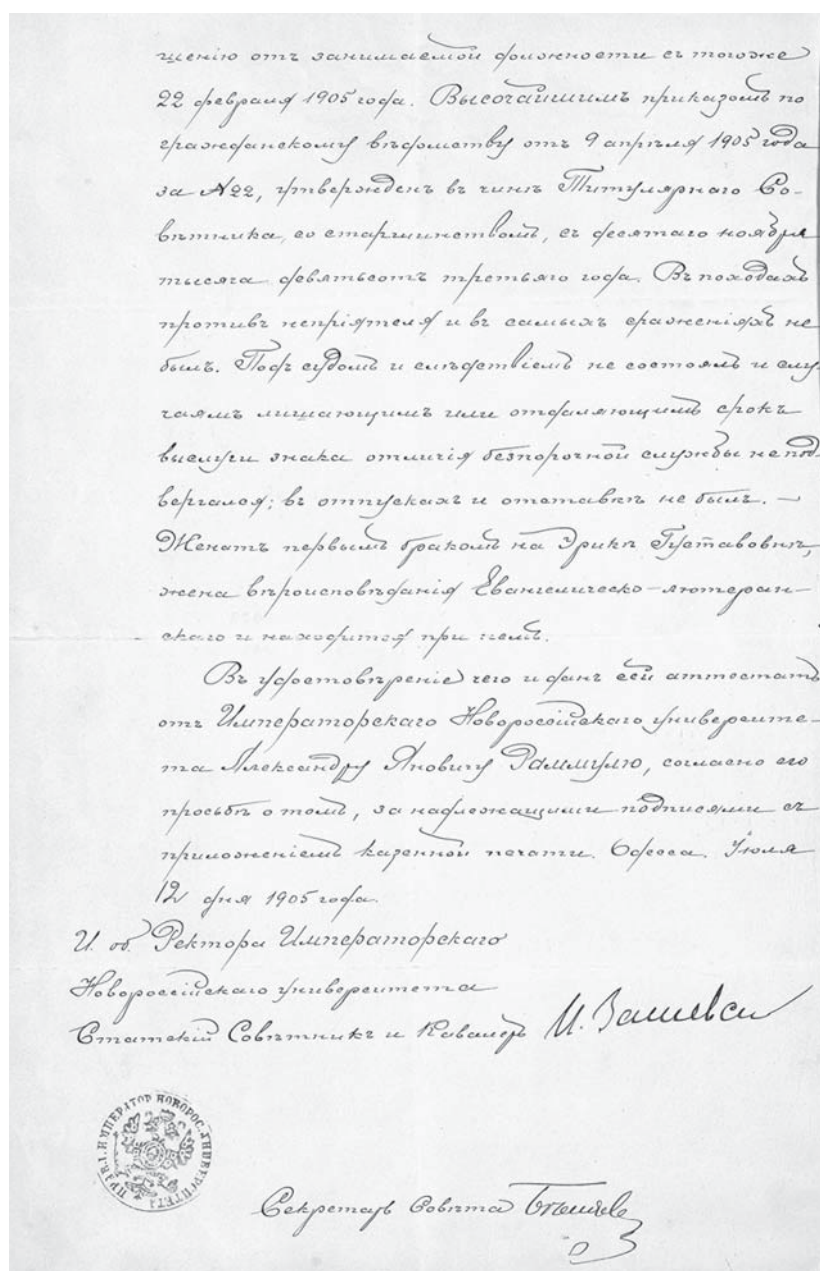 щенію отъ занимаемой должности съ тогоже
22 февраля 1905 года. Высочайшимъ приказомъ по
гражданскому вѣдомству отъ 9 апрѣля 1905 года
за №22, утвержденъ въ чинѣ Титулярнаго Со-
вѣтника, со старшинствомъ, съ десятаго ноября
тысяча девятьсотъ третьяго года. Въ походахъ
противъ непріятеля и въ самыхъ сраженіяхъ не
былъ. Подъ судомъ и слѣдствіемъ не состоялъ и слу-
чаямъ лишающимъ или отдаляющимъ срокъ
выслуги знака отличія безпорочной службы не под-
вергался; въ отпускахъ и отставкѣ не былъ. —
Женатъ первымъ бракомъ на Эрикѣ Густавовнѣ,
жена вѣроисповѣданія Евангелическо-лютеран-
скаго и находится при немъ.
Въ удостовѣреніе чего и данъ сей аттестатъ
отъ Императорскаго Новороссійскаго университе-
та Александру Яновичу Раммулю, согласно его
просьбѣ о томъ, за надлежащими подписями съ
приложеніемъ казенной печати. Одесса. Іюля
12 дня 1905 года.
И. об. Ректора Императорскаго
Новороссійскаго университета
Статскій Совѣтникъ и Кавалеръ
ПРАВ. І. ИМПЕРАТОР. НОВОРОС. УНИВЕРСИТЕТА
Секретарь Совѣта